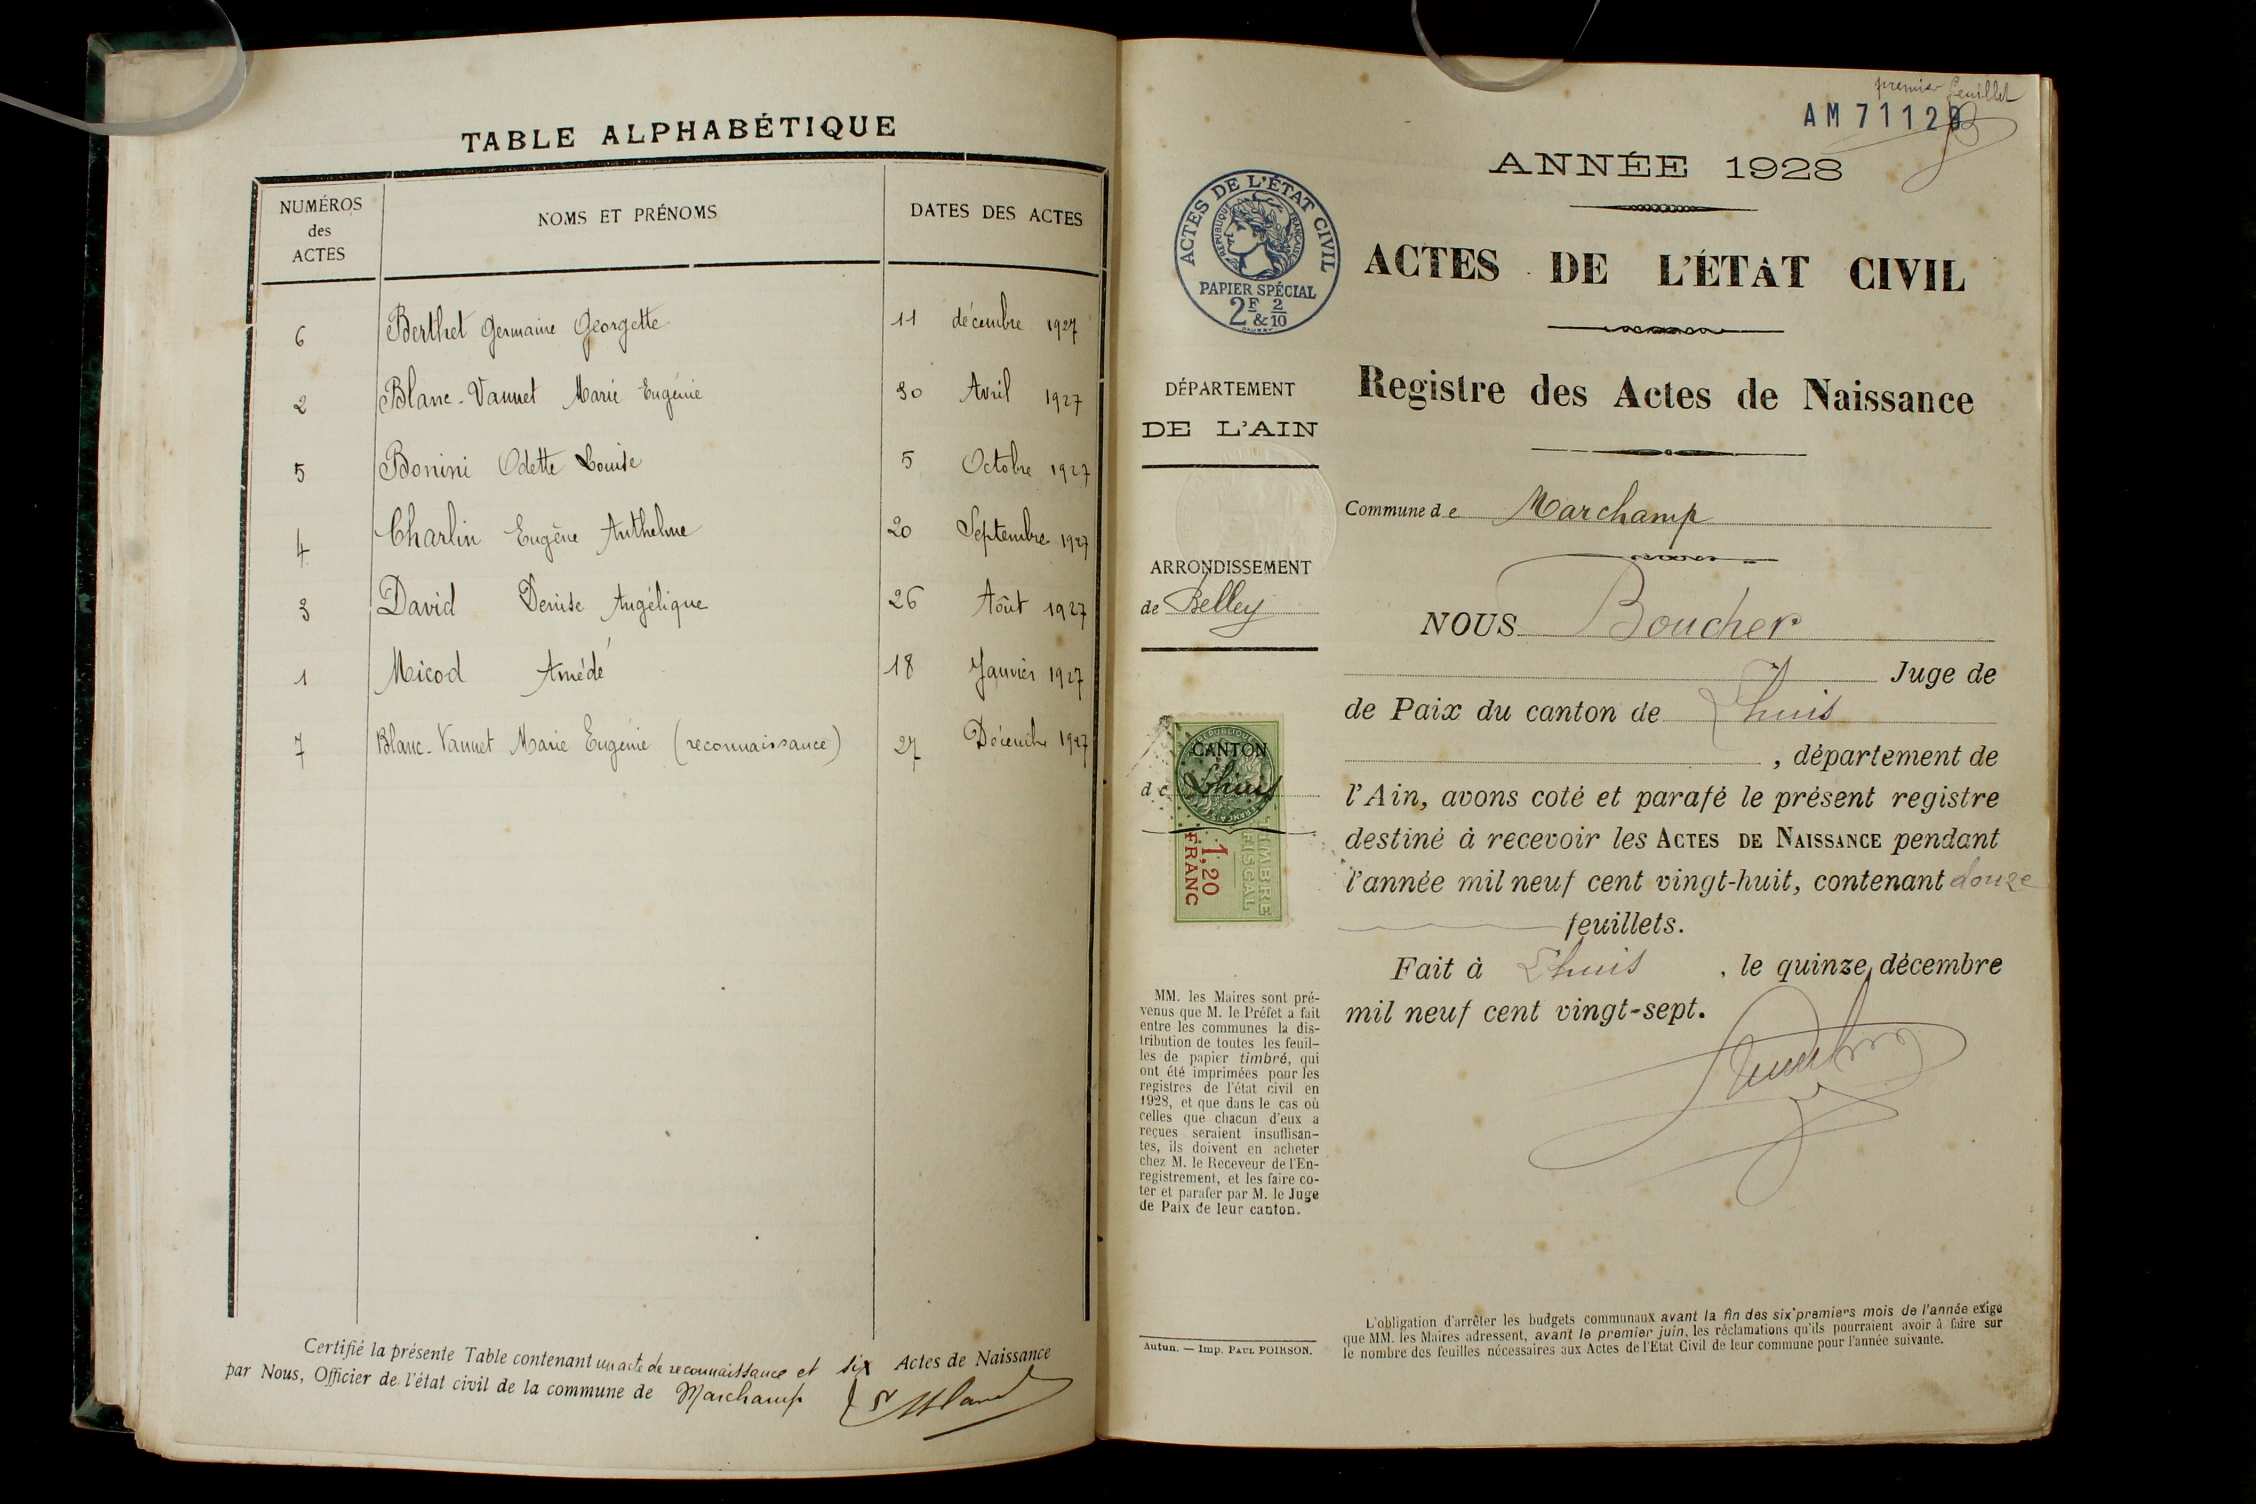 TABLE ALPHABÉTIQUE
NUMÉROS des ACTES NOMS ET PRÉNOMS DATES DES ACTES
6 Berthet Germaine Georgette 11 décembre 1927
2 Blanc-Vannet Marie Eugénie 30 Avril 1927
5 Bonini Odette Louise 5 Octobre 1927
4 Charlin Eugène Anthelme 20 Septembre 1927
3 David Denise Angélique 26 Août 1927
1 Micod Amédé 18 Janvier 1927
7 Blanc-Vannet Marie Eugénie (reconnaissance) 27 Décembre 1927
Certifié la présente Table contenant un acte de reconnaissance et six Actes de Naissance
par Nous, Officier de l'état civil de la commune de Marchamp
premier feuillet
AM 71128
ANNÉE 1928
ACTES DE L'ÉTAT CIVIL
RÉPUBLIQUE FRANÇAISE
PAPIER SPÉCIAL
2F & 2/10
ACTES DE L'ÉTAT CIVIL
Registre des Actes de Naissance
DÉPARTEMENT
DE L'AIN
Commune de Marchamp
ARRONDISSEMENT
de Belley
NOUS Boucher
Juge de
de Paix du canton de Lhuis
, département de
l'Ain, avons coté et parafé le présent registre
destiné à recevoir les ACTES DE NAISSANCE pendant
l'année mil neuf cent vingt-huit, contenant douze
feuillets.
Fait à Lhuis, le quinze décembre
mil neuf cent vingt-sept.
CANTON
de Lhuis
TIMBRE
FISCAL
1,20
FRANC
MM. les Maires sont pré-
venus que M. le Préfet a fait
entre les communes la dis-
tribution de toutes les feuil-
les de papier timbré, qui
ont été imprimées pour les
registres de l'état civil en
1928, et que dans le cas où
celles que chacun d'eux a
reçues seraient insuffisan-
tes, ils doivent en acheter
chez M. le Receveur de l'En-
registrement, et les faire co-
ter et parafer par M. le Juge
de Paix de leur canton.
Autun. — Imp. PAUL POIRSON.
L'obligation d'arrêter les budgets communaux avant la fin des six premiers mois de l'année exige
que MM. les Maires adressent, avant le premier juin, les réclamations qu'ils pourraient avoir à faire sur
le nombre des feuilles nécessaires aux Actes de l'Etat Civil de leur commune pour l'année suivante.